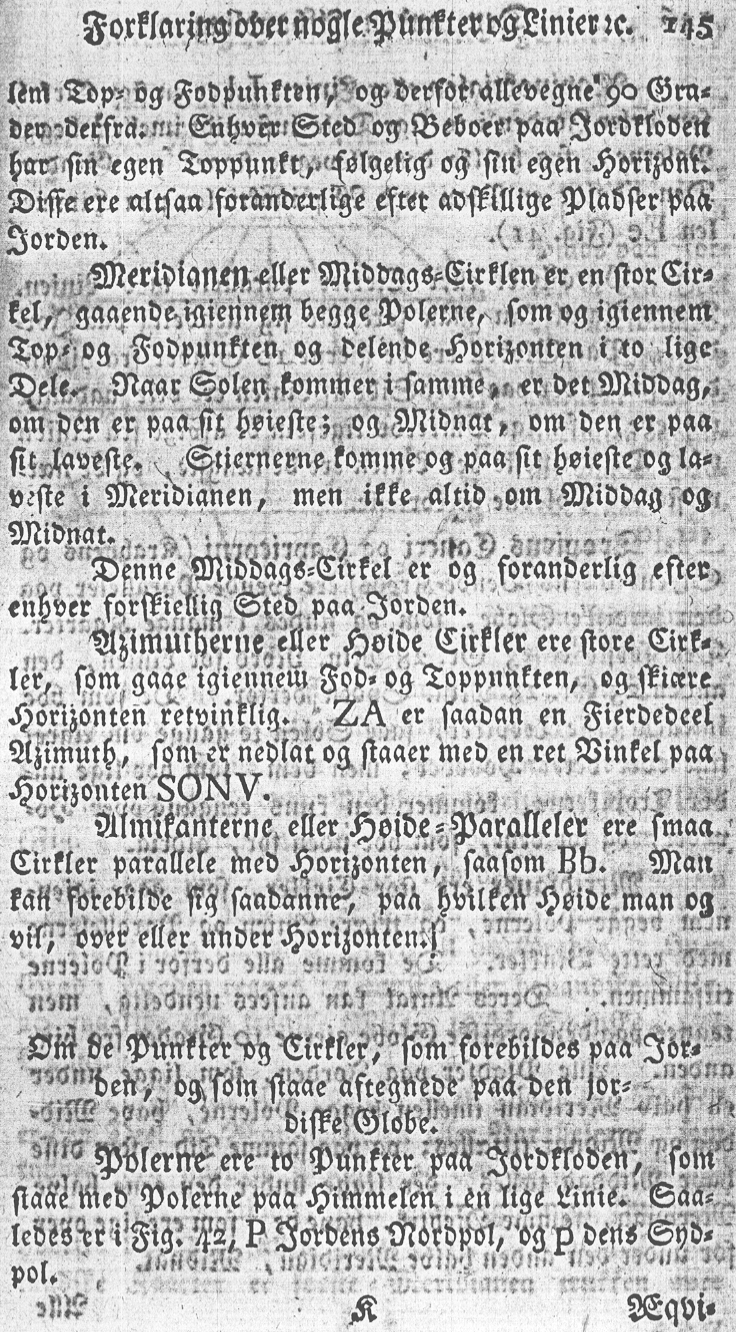 Forklaring over nogle Punkter og Linier ꝛc. 145
lem Top- og Fodpunkten, og derfor allevegne 90 Gra-
der derfra. Enhver Sted og Beboer paa Jordkloden
har sin egen Toppunkt, følgelig og sin egen Horizont.
Disse ere altsaa foranderlige efter adskillige Pladser paa
Jorden.
Meridianen eller Middags-Cirklen er en stor Cir-
kel, gaaende igiennem begge Polerne, som og igiennem
Top- og Fodpunkten og delende Horizonten i to lige
Dele. Naar Solen kommer i samme, er det Middag,
om den er paa sit høieste; og Midnat, om den er paa
sit laveste. Stiernerne komme og paa sit høieste og la-
veste i Meridianen, men ikke altid om Middag og
Midnat.
Denne Middags-Cirkel er og foranderlig efter
enhver forskiellig Sted paa Jorden.
Azimutherne eller Høide Cirkler ere store Cirk-
ler, som gaae igiennem Fod- og Toppunkten, og skiære
Horizonten retvinklig. ZA er saadan en Fierdedeel
Azimuth, som er nedlat og staaer med en ret Vinkel paa
Horizonten SONV.
Almikanterne eller Høide-Paralleler ere smaa
Cirkler parallele med Horizonten, saasom Bb. Man
kan forebilde sig saadanne, paa hvilken Høide man og
vil, over eller under Horizonten.]
Om de Punkter og Cirkler, som forebildes paa Jor-
den, og som staae aftegnede paa den jor-
diske Globe.
Polerne ere to Punkter paa Jordkloden, som
staae med Polerne paa Himmelen i en lige Linie. Saa-
ledes er i Fig. 42, P Jordens Nordpol, og p dens Syd-
pol.
K Æqvi-